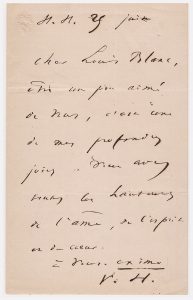 H. H. 25 juin
cher Louis Blanc,
être un peu aimé
de vous, c'est une
de mes profondes
joies. Vous avez
toutes les hauteurs
de l'âme, de l'esprit
et du cœur.
V. H.